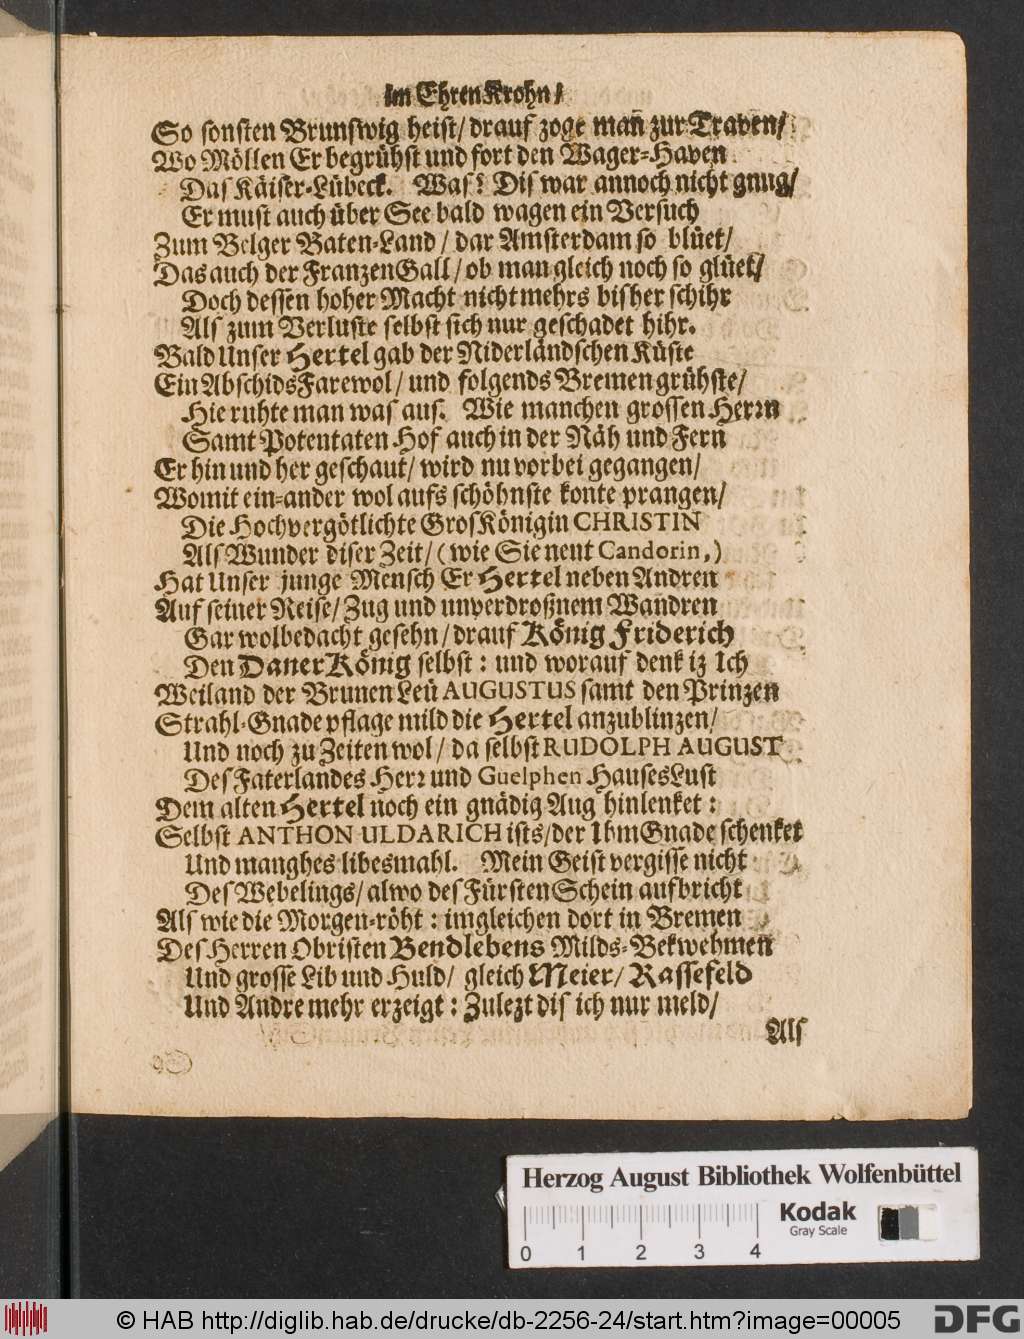 im EhrenKrohn/
So sonsten Brunswig heist/ drauf zoge man̄ zur Traven/
Wo Möllen Er begrühst und fort den Wager-Haven
Das Käiser-Lübeck. Was? Dis war annoch nicht gnug/
Er must auch über See bald wagen ein Versuch
Zum Belger Baten-Land / dar Amsterdam so blüet/
Das auch der FranzenGall / ob man gleich noch so glüet/
Doch dessen hoher Macht nicht mehrs bisher schihr
Als zum Verluste selbst sich nur geschadet hihr.
Bald Unser Hertel gab der Niderländschen Küste
Ein AbschidsFarewol / und folgends Bremen grühste/
Hie ruhte man was aus. Wie manchen grossen Herrn
Samt Potentaten Hof auch in der Näh und Fern
Er hin und her geschaut/ wird nu vorbei gegangen/
Womit ein-ander wol aufs schöhnste konte prangen/
Die Hochvergötlichte GrosKönigin CHRISTIN
Als Wunder diser Zeit/ (wie Sie nent Candorin,)
Hat Unser junge Mensch Er Hertel neben Andren
Auf seiner Reise/ Zug und unverdroßnem Wandren
Gar wolbedacht gesehn/ drauf König Friderich
Den DanerKönig selbst: und worauf denk iz Ich
Weiland der BrunenLeü AUGUSTUS samt den Prinzen
Strahl-Gnade pflage mild die Hertel anzublinzen/
Und noch zu Zeiten wol/ da selbst RUDOLPH AUGUST
Des Faterlandes Herr und Guelphen HausesLust
Dem alten Hertel noch ein gnädig Aug hinlenket:
Selbst ANTHON ULDARICH ists/ der IhmGnade schenket
Und manghes libesmahl. Mein Geist vergisse nicht
Des Webelings/ alwo des FürstenSchein aufbricht
Als wie die Morgen-röht: imgleichen dort in Bremen
Des Herren Obristen Bendlebens Milds-Bekwehmen
Und grosse Lib und Huld/ gleich Meier/ Rassefeld
Und Andre mehr erzeigt: Zulezt dis ich nur meld/
Als
Herzog August Bibliothek Wolfenbüttel
Kodak
Gray Scale
0 1 2 3 4
© HAB http://diglib.hab.de/drucke/db-2256-24/start.htm?image=00005
DFG